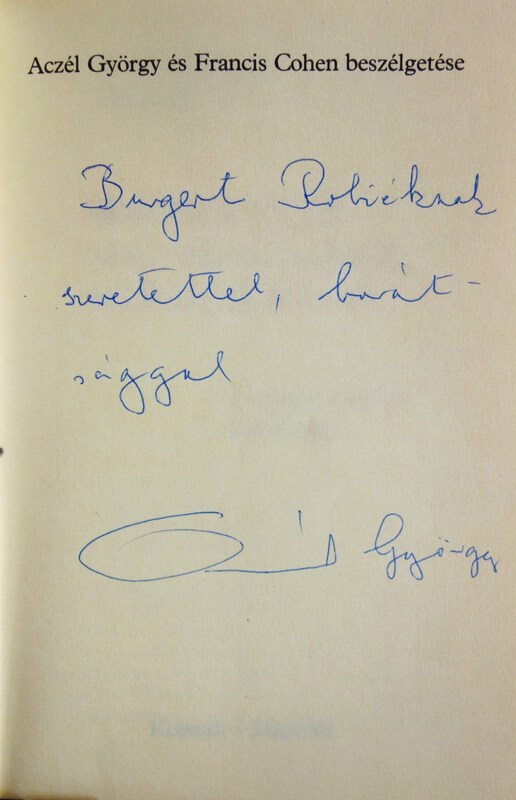 Aczél György és Francis Cohen beszélgetése
Burgert Robiéknak
szeretettel, barát-
sággal
Aczél György